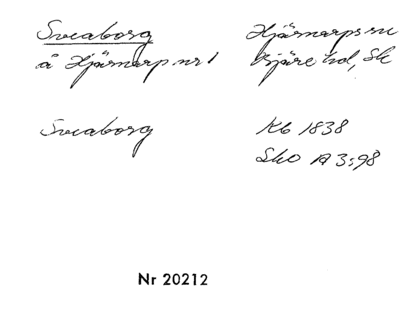 Sveaborg
å Hjärnarp nr 1
Hjärnarps sn
Bjäre hd, Sk
Sveaborg
Kb 1838
Sko A 3:98
Nr 20212